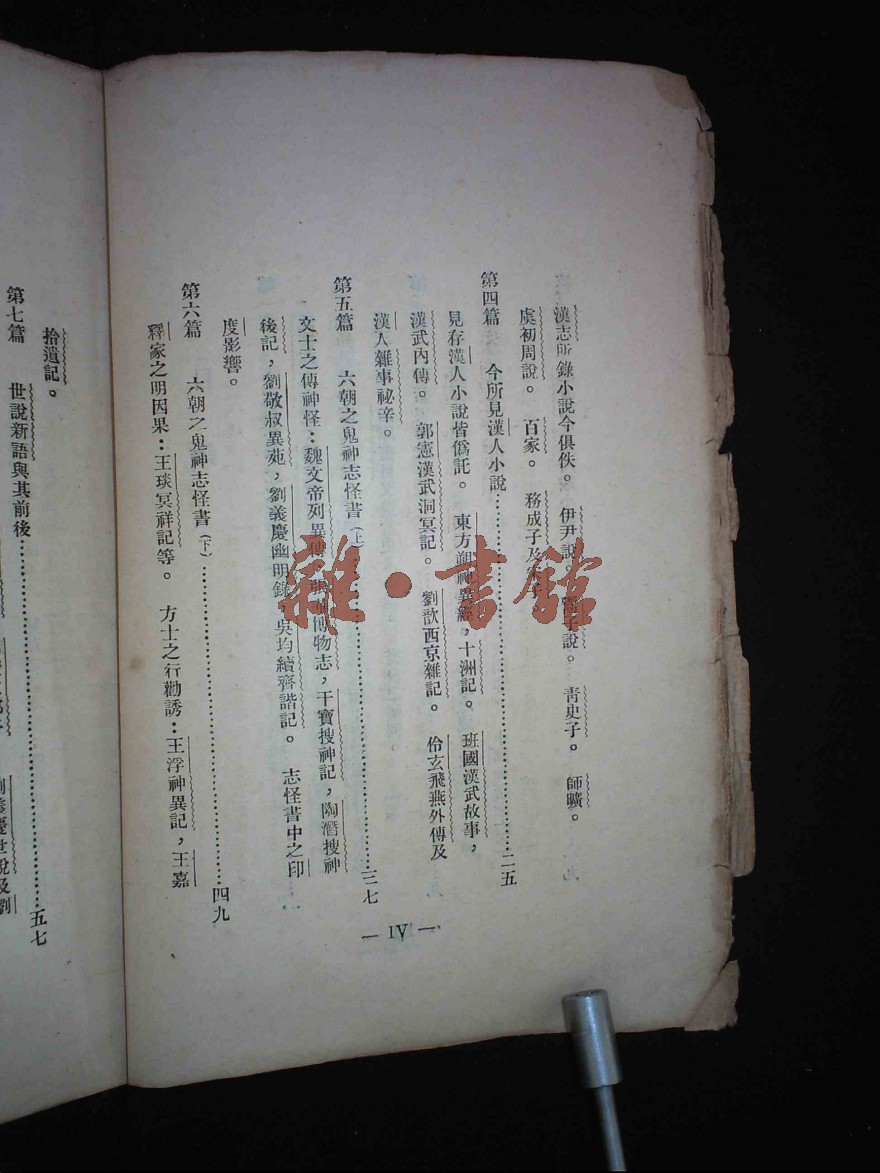 漢志所錄小說今俱佚。 伊尹說。 鬻子說。 青史子。 師曠。
虞初周說。 百家。 務成子及
第四篇 今所見漢人小說……二五
見存漢人小說皆僞託。 東方朔神異經，十洲記。 班固漢武故事，
漢武內傳。 郭憲漢武洞冥記。 劉歆西京雜記。 伶玄飛燕外傳及
漢人雜事祕辛。
第五篇 六朝之鬼神志怪書（上）……三七
文士之傳神怪：魏文帝列異傳，張華博物志，干寶搜神記，陶潛搜神
後記，劉敬叔異苑，劉義慶幽明錄，吳均續齊諧記。 志怪書中之印
度影響。
第六篇 六朝之鬼神志怪書（下）……四九
釋家之明因果：王琰冥祥記等。 方士之行勸誘：王浮神異記，王嘉
拾遺記。
第七篇 世說新語與其前後……五七
劉義慶世說及劉
— IV —
雜·書館